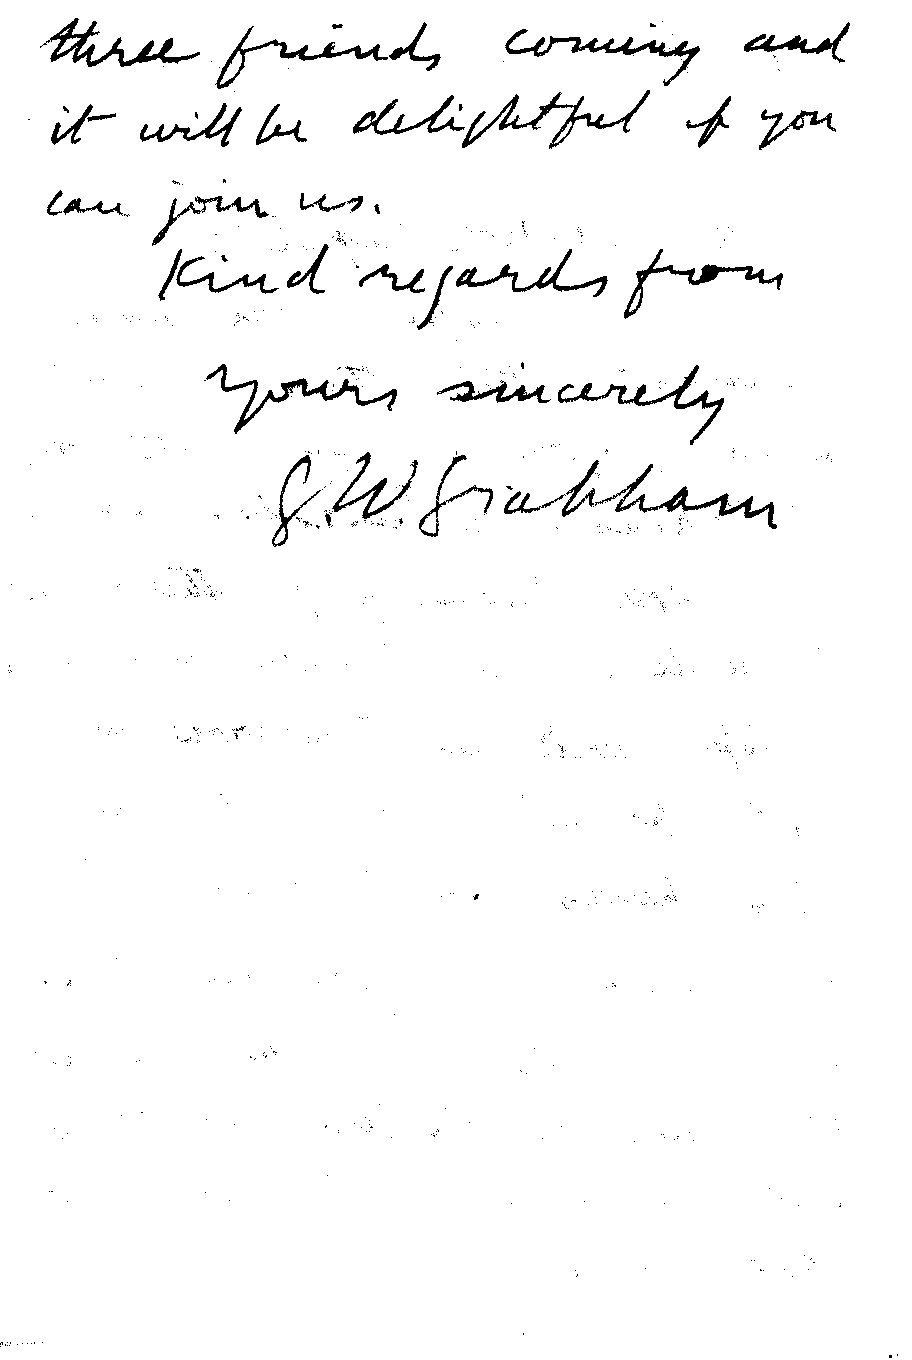 three friends coming and
it will be delightful if you
can join us.
Kind regards from
yours sincerely
G W Grabham